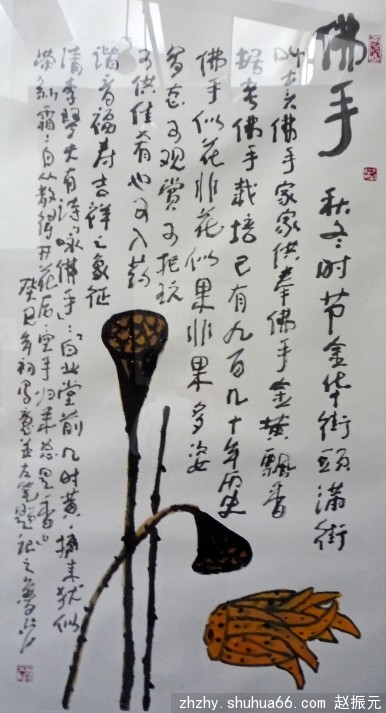 佛手
秋冬时节金华街头满街
叫卖佛手家家供奉佛手金黄飘香
据考佛手栽培已有九百几十年历史
佛手似花非花似果非果多姿
多态可观赏可把玩
可供佳肴也可入药
谐音福寿吉祥之象征
清李琴夫有诗咏佛手：白业堂前几时黄，摘来犹似
带新霜：自从散得开花后，空手归来总是香。
癸巳年初写意并左笔题记之
zhzhy.shuhua66.com 赵振元